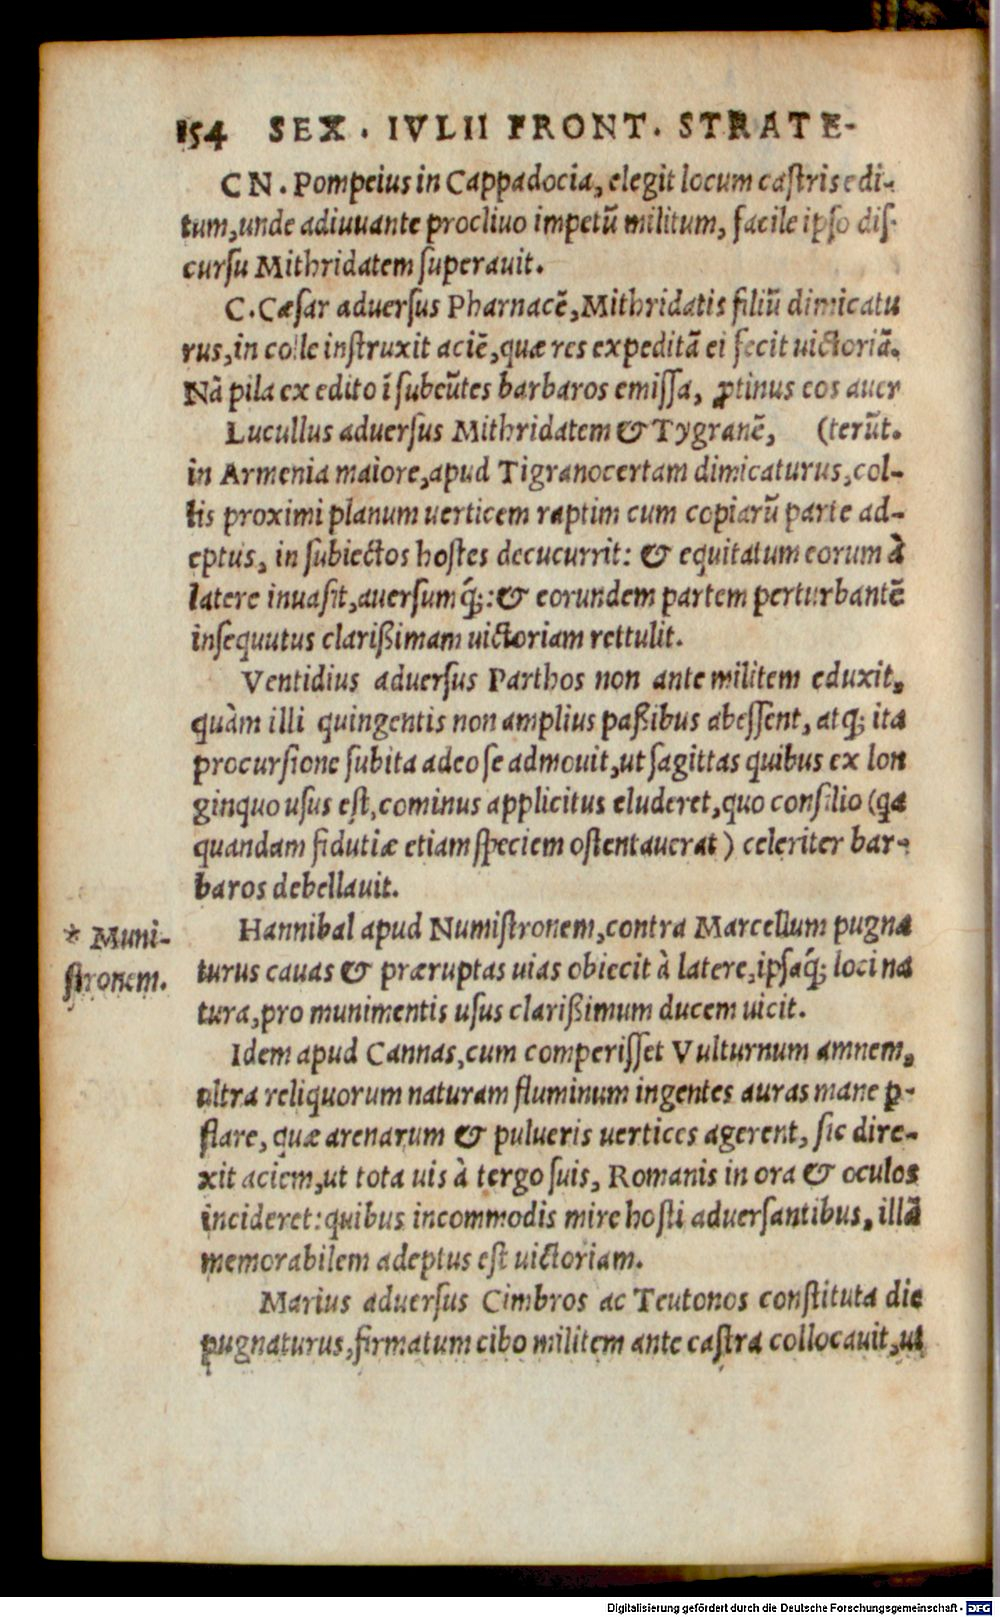 154 SEX. IVLII FRONT. STRATE-
CN. Pompeius in Cappadocia, elegit locum castris edi-
tum, unde adiuuante procliuo impetū militum, facile ipso dis-
cursu Mithridatem superauit.
C. Cæsar aduersus Pharnacē, Mithridatis filiū dimicatu
rus, in colle instruxit aciē, quæ res expeditā ei fecit uictoriā.
Nā pila ex edito ī subeūtes barbaros emissa, ꝓtinus eos auer
Lucullus aduersus Mithridatem & Tygranē, (terūt.
in Armenia maiore, apud Tigranocertam dimicaturus, col-
lis proximi planum uerticem raptim cum copiarū parte ad-
eptus, in subiectos hostes decucurrit: & equitatum eorum à
latere inuasit, auersumq́;: & eorundem partem perturbantē
insequutus clarißimam uictoriam rettulit.
Ventidius aduersus Parthos non ante militem eduxit,
quàm illi quingentis non amplius paßibus abessent, atq; ita
procursione subita adeo se admouit, ut sagittas quibus ex lon
ginquo usus est, cominus applicitus eluderet, quo consilio (qa
quandam fidutiæ etiam speciem ostentauerat) celeriter bar-
baros debellauit.
Hannibal apud Numistronem, contra Marcellum pugna
* Muni-
stronem.
turus cauas & præruptas uias obiecit à latere, ipsaq́; loci na
tura, pro munimentis usus clarißimum ducem uicit.
Idem apud Cannas, cum comperisset Vulturnum amnem,
ultra reliquorum naturam fluminum ingentes auras mane ꝑ-
flare, quæ arenarum & pulueris uertices agerent, sic dire-
xit aciem, ut tota uis à tergo suis, Romanis in ora & oculos
incideret: quibus incommodis mire hosti aduersantibus, illā
memorabilem adeptus est uictoriam.
Marius aduersus Cimbros ac Teutonos constituta die
pugnaturus, firmatum cibo militem ante castra collocauit, ut
Digitalisierung gefördert durch die Deutsche Forschungsgemeinschaft - DFG